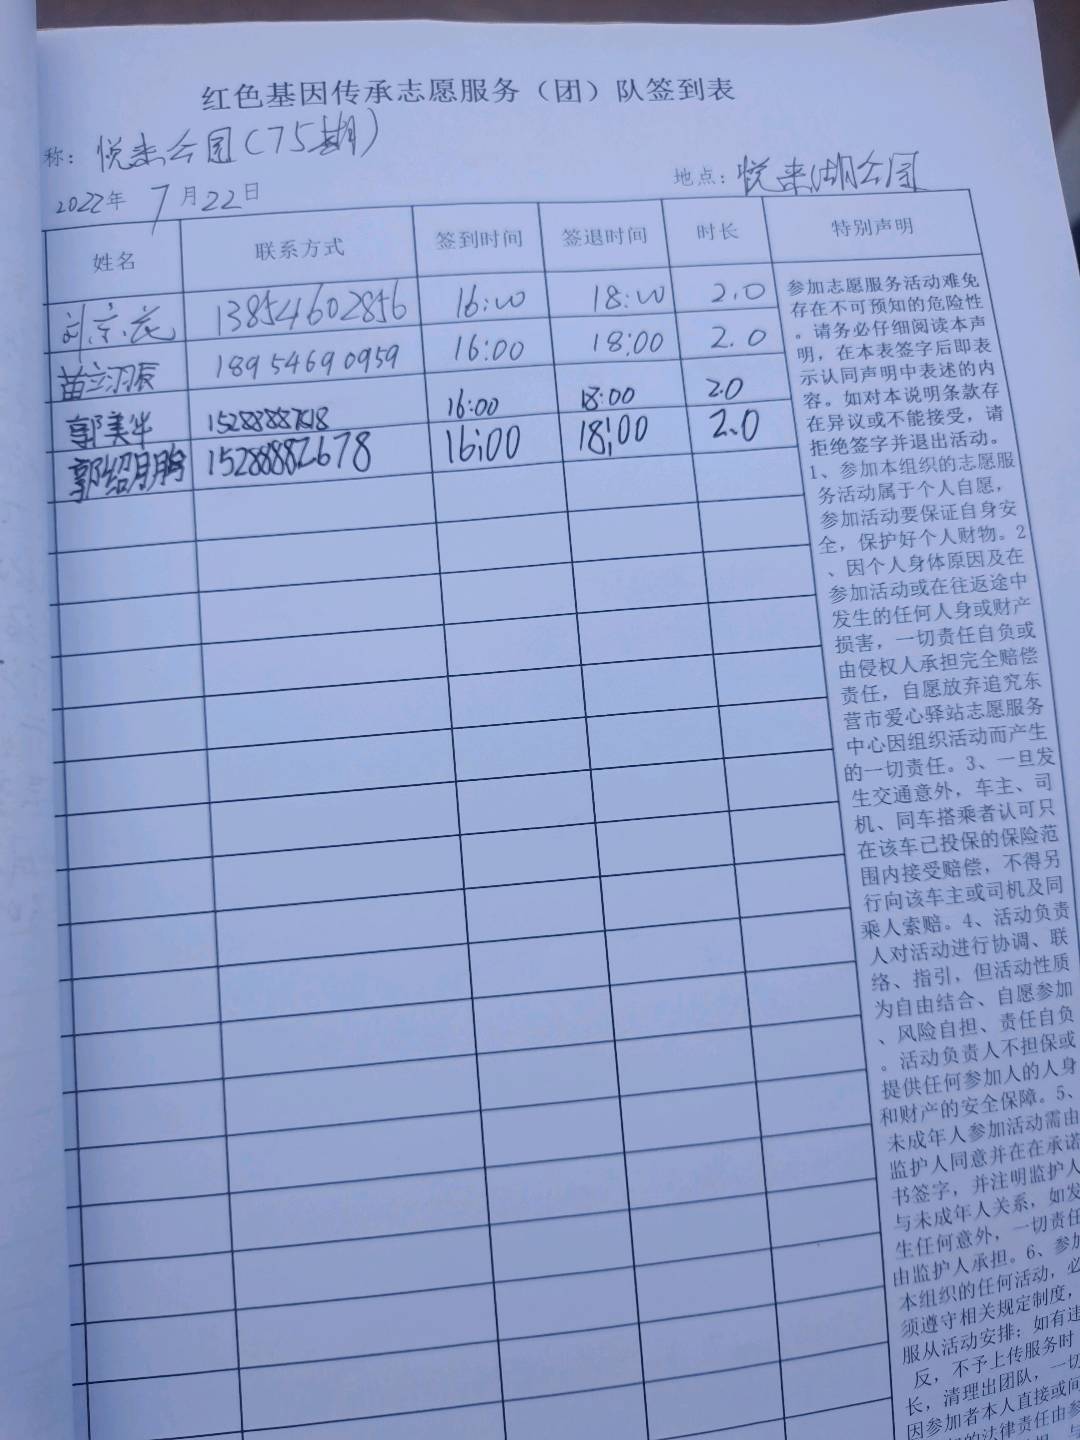 红色基因传承志愿服务（团）队签到表
称：悦来公园（75期）
2022年7月22日 地点：悦来湖公园
姓名 联系方式 签到时间 签退时间 时长 特别声明
13854602856 16:00 18:00 2.0
苗立羽辰 18954690959 16:00 18:00 2.0
郭美华 16:00 18:00 2.0
15288882678 16:00 18:00 2.0
参加志愿服务活动难免
存在不可预知的危险性
。请务必仔细阅读本声
明，在本表签字后即表
示认同声明中表述的内
容。如对本说明条款存
在异议或不能接受，请
拒绝签字并退出活动。
1、参加本组织的志愿服
务活动属于个人自愿，
参加活动要保证自身安
全，保护好个人财物。2
、因个人身体原因及在
参加活动或在往返途中
发生的任何人身或财产
损害，一切责任自负或
由侵权人承担完全赔偿
责任，自愿放弃追究东
营市爱心驿站志愿服务
中心因组织活动而产生
的一切责任。3、一旦发
生交通意外，车主、司
机、同车搭乘者认可只
在该车已投保的保险范
围内接受赔偿，不得另
行向该车主或司机及同
乘人索赔。4、活动负责
人对活动进行协调、联
络、指引，但活动性质
为自由结合、自愿参加
、风险自担、责任自负
。活动负责人不担保或
提供任何参加人的人身
和财产的安全保障。5、
未成年人参加活动需由
监护人同意并在在承诺
书签字，并注明监护人
与未成年人关系，如发
生任何意外，一切责任
由监护人承担。6、参加
本组织的任何活动，必
须遵守相关规定制度，
服从活动安排；如有违
反，不予上传服务时
长，清理出团队，一切
因参加者本人直接或间
的法律责任由参